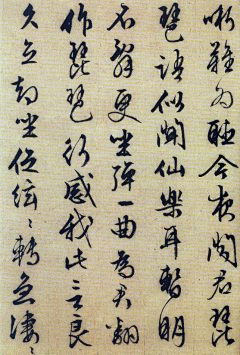 哳難為聽今夜聞君琵
琶語似聞仙樂耳暫明
莫辭更坐彈一曲為君翻
作琵琶行感我此言良
久立却坐促絃〻轉急凄〻